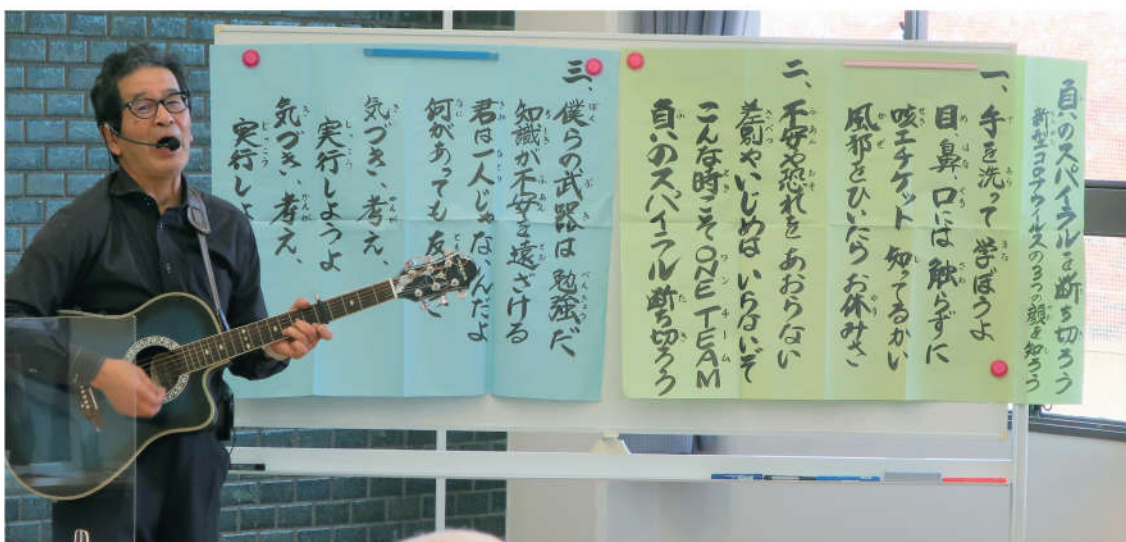 負のスパイラルを断ち切ろう
新型コロナウイルスの3つの顔を知ろう
一、手を洗って 学ぼうよ
目、鼻、口には 触らずに
咳エチケット 知ってるかい
風邪をひいたら お休みさ
二、不安や恐れを あおらない
差別や、いじめは いらないぞ
こんな時こそ ONE TEAM
負いのスパイラル 断ち切ろう
三、僕らの武器は 勉強だ
知識が不安を 遠ざける
君は一人じゃないんだよ
何があっても
気づき、考え、
実行しようよ
気づき、考え、
実行しよ